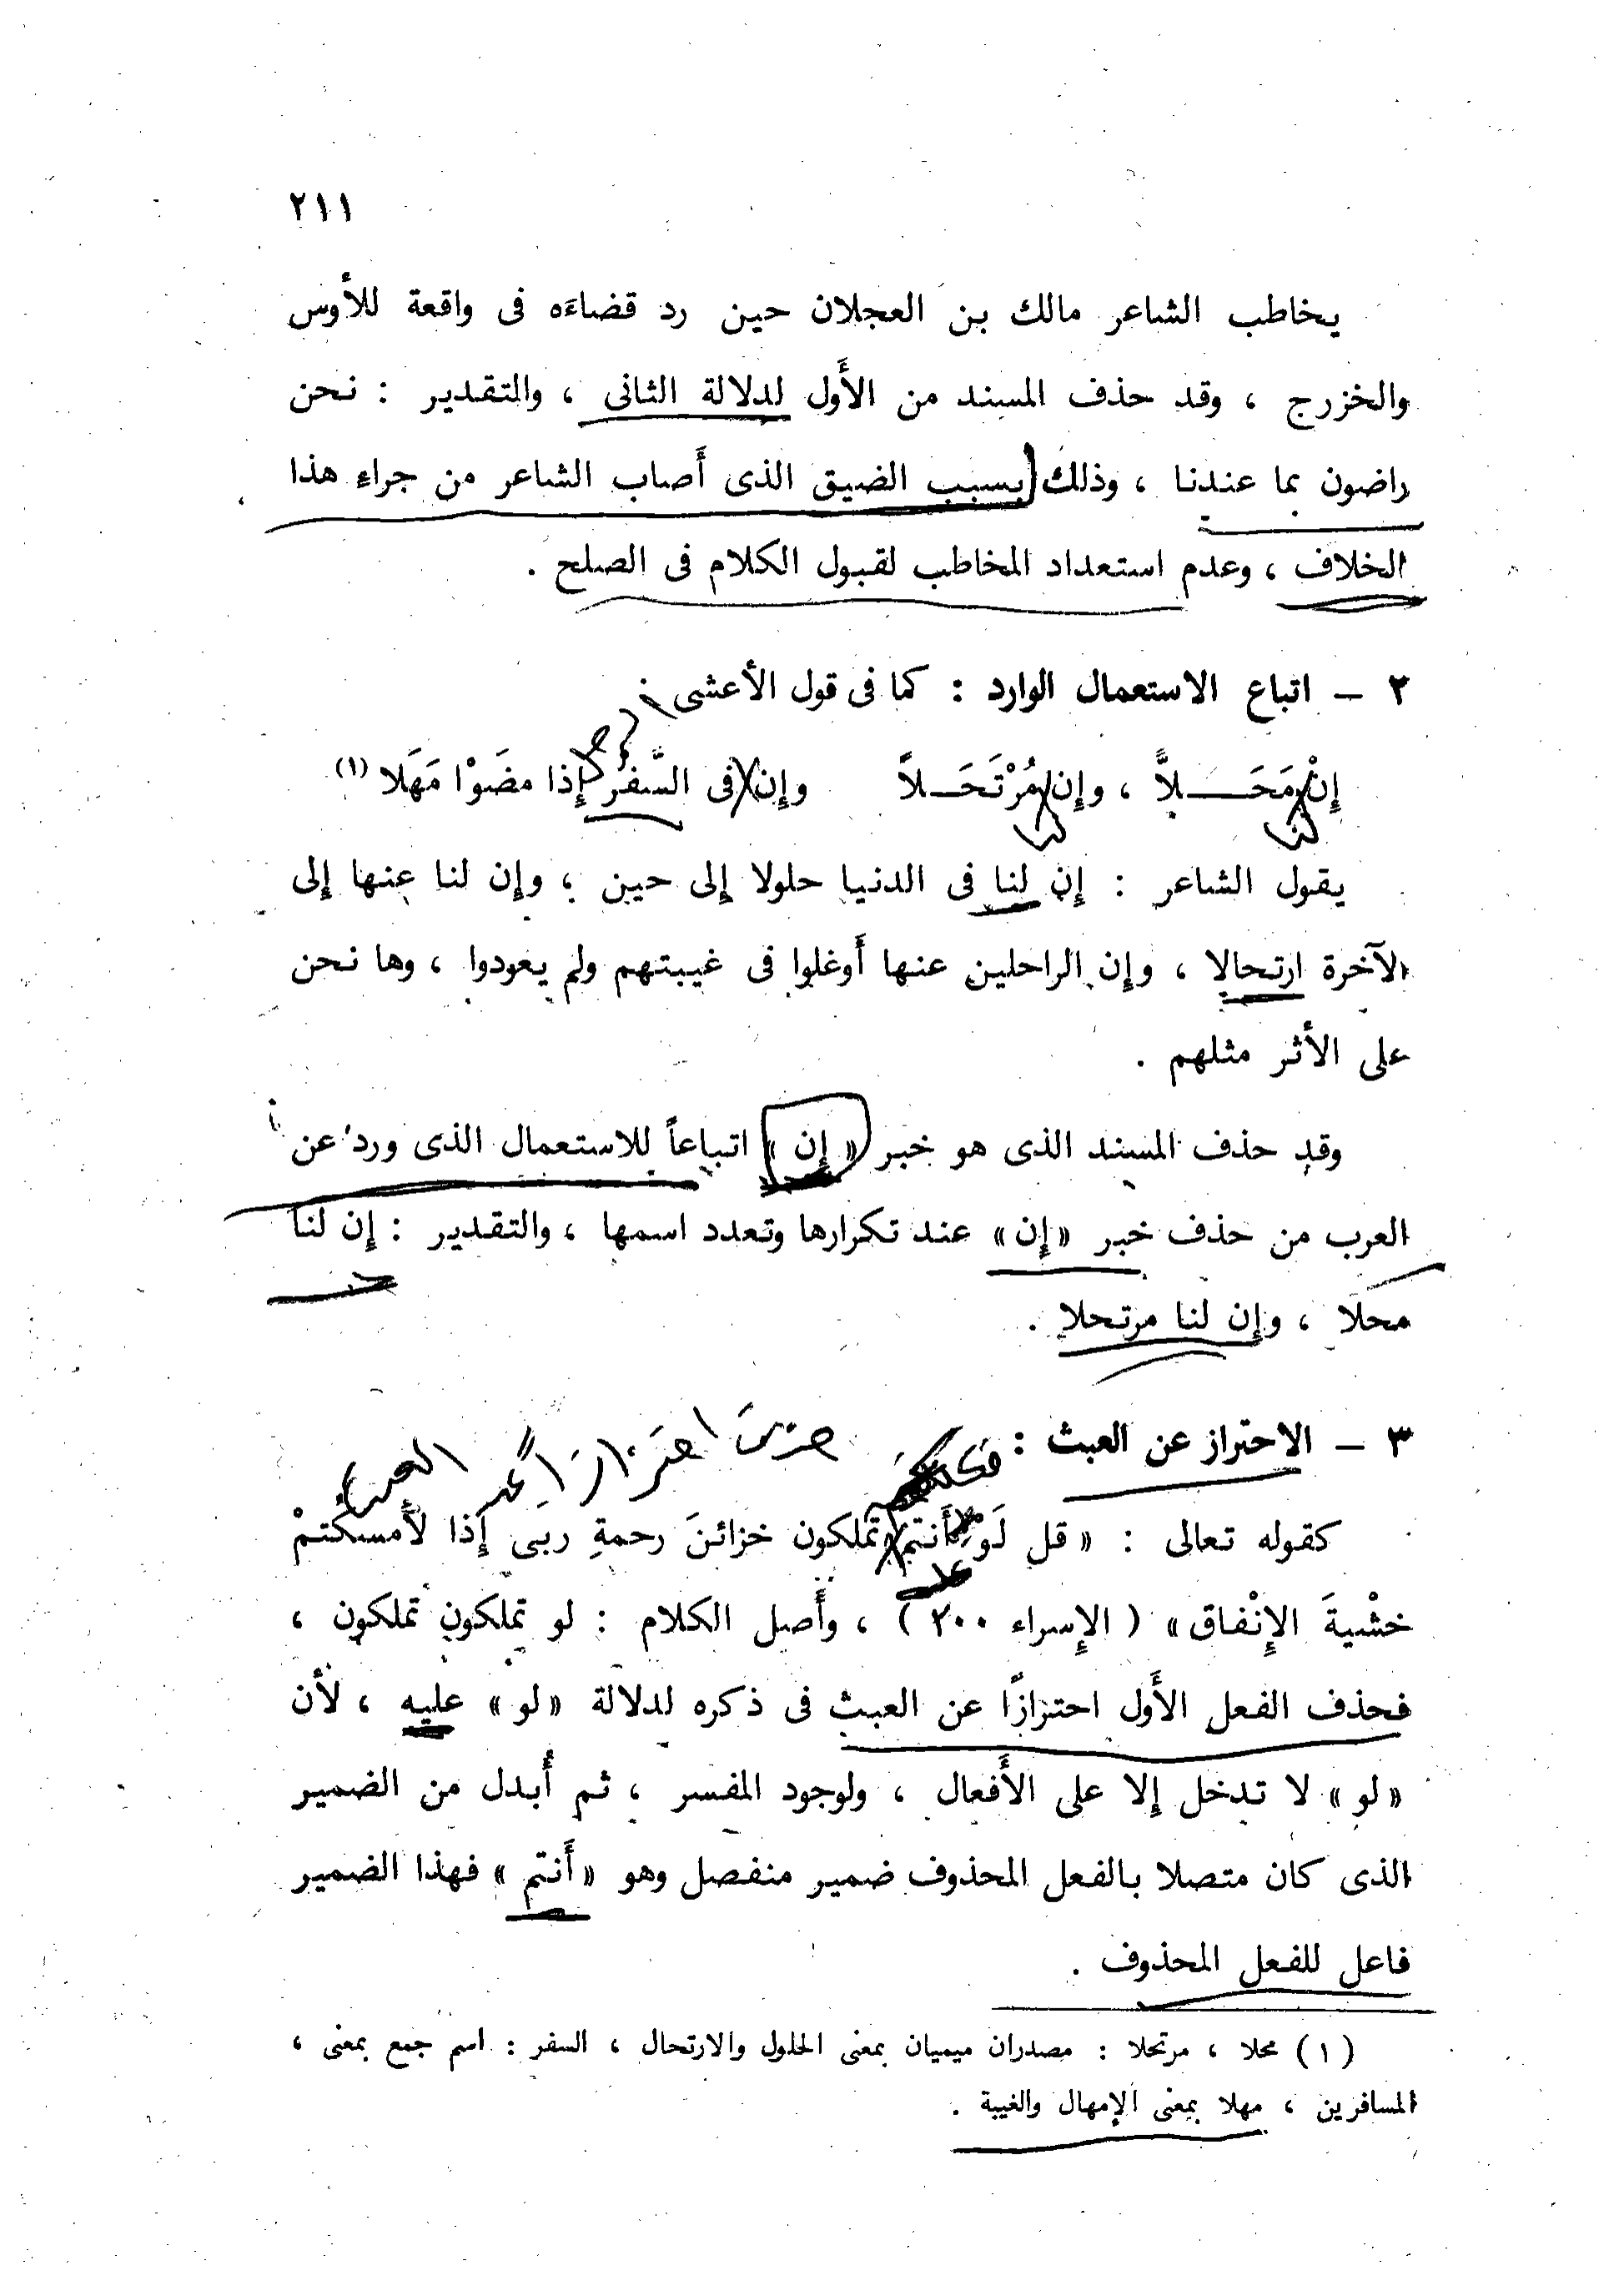 ٢١١
يخاطب الشاعر مالك بن العجلان حين رد قضاءَه فى واقعة للأوس
والخزرج ، وقد حذف المسند من الأَول لدلالة الثانى ، والتقدير : نحن
راضون بما عندنا ، وذلك بسبب الضيق الذى أَصاب الشاعر من جراءِ هذا
الخلاف ، وعدم استعداد المخاطب لقبول الكلام فى الصلح .
٢ – اتباع الاستعمال الوارد : كما فى قول الأعشى
إِنْ مَحَـــلاًّ ، وإِن مُرْتَحَـلاً وإِن فى السَّفْر إِذا مضَوْا مَهَلا (١)
لنا لنا
يقول الشاعر : إِن لنا فى الدنيا حلولا إِلى حين ، وإِن لنا عنها إِلى
الآخرة ارتحالا ، وإِن الراحلين عنها أَوغلوا فى غيبتهم ولم يعودوا ، وها نحن
على الأثر مثلهم .
وقد حذف المسند الذى هو خبر « إِن » اتباعاً للاستعمال الذى ورد عن
العرب من حذف خبر « إِن » عند تكرارها وتعدد اسمها ، والتقدير : إِن لنا
محلا ، وإِن لنا مرتحلا .
٣ – الاحتراز عن العبث :
كقوله تعالى : « قل لَوْ أَنتم تملكون خزائنَ رحمةِ ربى إِذا لأَمسكْتمْ
خشْيةَ الإِنْفاق » ( الإِسراء ٢٠٠ ) ، وأَصل الكلام : لو تملكون تملكون ،
فحذف الفعل الأَول احترازًا عن العبث فى ذكره لدلالة « لو » عليه ، لأن
« لو » لا تدخل إِلا على الأَفعال ، ولوجود المفسر ، ثم أُبدل من الضمير
الذى كان متصلا بالفعل المحذوف ضمير منفصل وهو « أَنتم » فهذا الضمير
فاعل للفعل المحذوف .
( ١ ) محلا ، مرتحلا : مصدران ميميان بمعنى الحلول والارتحال ، السفر : اسم جمع بمعنى ،
المسافرين ، مهلا بمعنى الإمهال والغيبة .